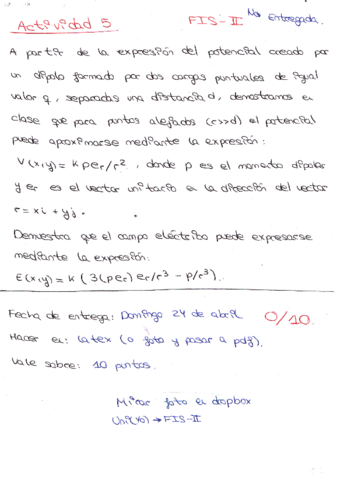 Actividad 5 FIS-II No Entregada.
A partir de la expresión del potencial creado por
un dipolo formado por dos cargas puntuales de igual
valor q, separadas una distancia d, demostramos en
clase que para puntos alejados (r>>d) el potencial
puede aproximarse mediante la expresión:
V(x,y) = K p er/r², donde p es el momento dipolar
y er es el vector unitario en la dirección del vector
r = xi + yj.
Demuestra que el campo eléctrico puede expresarse
mediante la expresión:
E(x,y) = K (3(p er) er/r³ - p/r³).
Fecha de entrega: Domingo 24 de abril 0/10.
Hacer en: latex (o foto y pasar a pdf).
Vale sobre: 10 puntos.
Mirar foto en dropbox
→ FIS-II